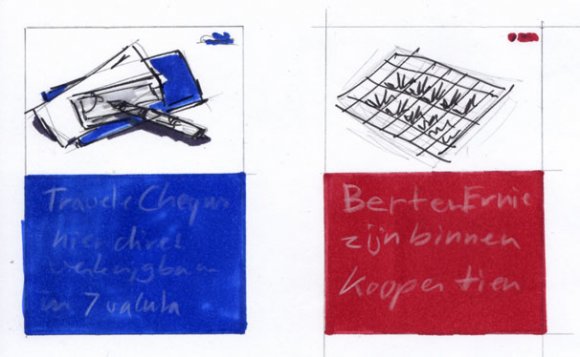 Travele Cheques
hier direct
verkrijgbaar
in 7 valuta
Bert en Ernie
zijn binnen
Koop er tien